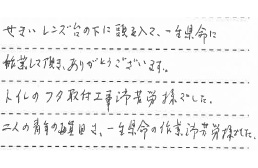 せまいレンズ台の下に頭を入て、一生県命に
作業して頂き、ありがとうございます。
トイレのフタ取付工事御苦労様でした。
二人の青年の真面目さ、一生県命の作業御苦労様でした。